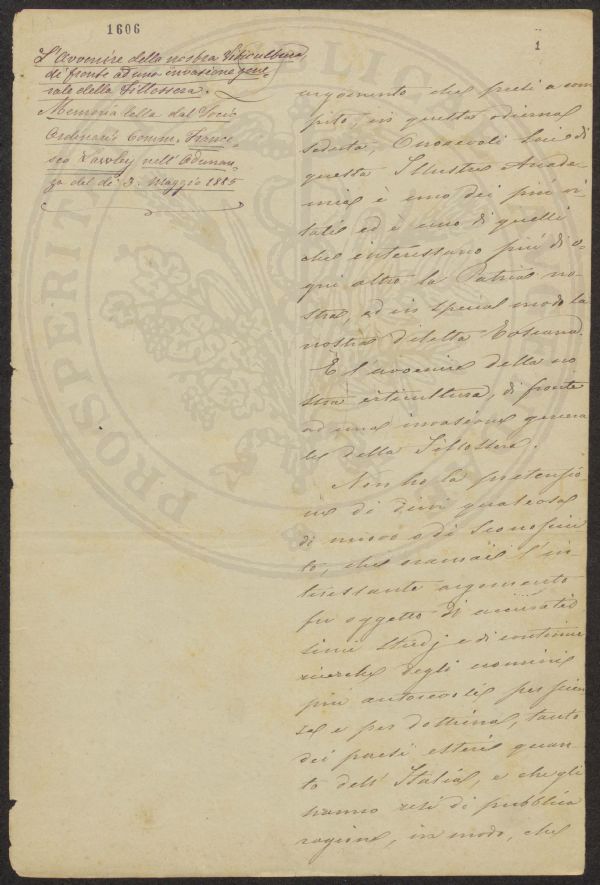 1606
1
L'Avvenire della nostra Viticultura,
di fronte ad una invasione gene-
rale della Fillossera.
Memoria letta dal Socio
Ordinario Comm. France-
sco Lawley nell'Adunan-
za del dì 3. Maggio 1885
argomento che presi a com
pito, in questa odierna
seduta, Onorevoli Socii di
questa Illustre Accade
mia è uno dei più vi
tali ed è uno di quelli
che interessano più di o-
gni altro la Patria no-
stra, ed in special modo la
nostra diletta Toscana.
E l'avvenire della no
stra viticultura, di fronte
ad una invasione genera
le della Fillossera.
Non ho la pretensio
ne di dirvi qualcosa
di nuovo o di sconosciu
to, che oramai l'in-
teressante argomento
fu oggetto di accuratis
simi studj e di continue
ricerche degli uomini
più autorevoli per scien
za e per dottrina, tanto
dei paesi esteri quan-
to dell'Italia, e che gli
hanno resi di pubblica
ragione, in modo, che
PROSPERITÀ PUBLICA